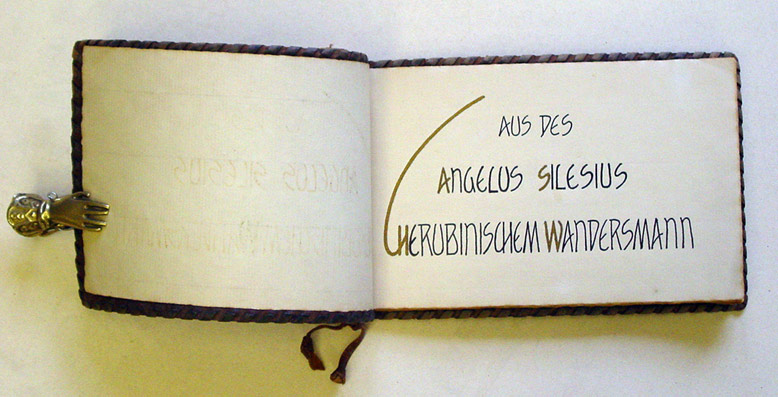 AUS DES
ANGELUS SILESIUS
CHERUBINISCHEM WANDERSMANN